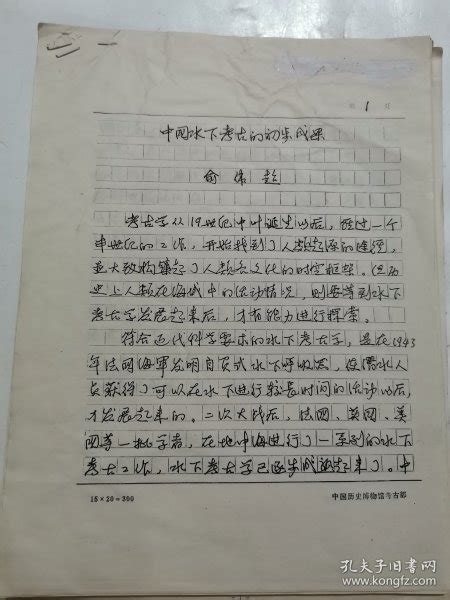 第 1 页
中国水下考古的初步成果
俞伟超
考古学从19世纪中叶诞生以后，经过一个
半世纪的工作，开始找到了人类起源的途径，
并大致构筑起了人类古文化的时空框架。但历
史上人类在海域中的活动情况，则要等到水下
考古学发展起来后，才有能力进行探索。
符合近代科学要求的水下考古学，是在1943
年法国海军发明自负式水下呼吸器，使潜水人
员获得了可以在水下进行较长时间的活动以后，
才发展起来的。二次大战后，法国、英国、美
国等一批学者，在地中海进行了一系列的水下
考古工作，水下考古学已逐步成熟起来了。中
15×20=300
中国历史博物馆考古部
孔夫子旧书网
www.kongfz.com